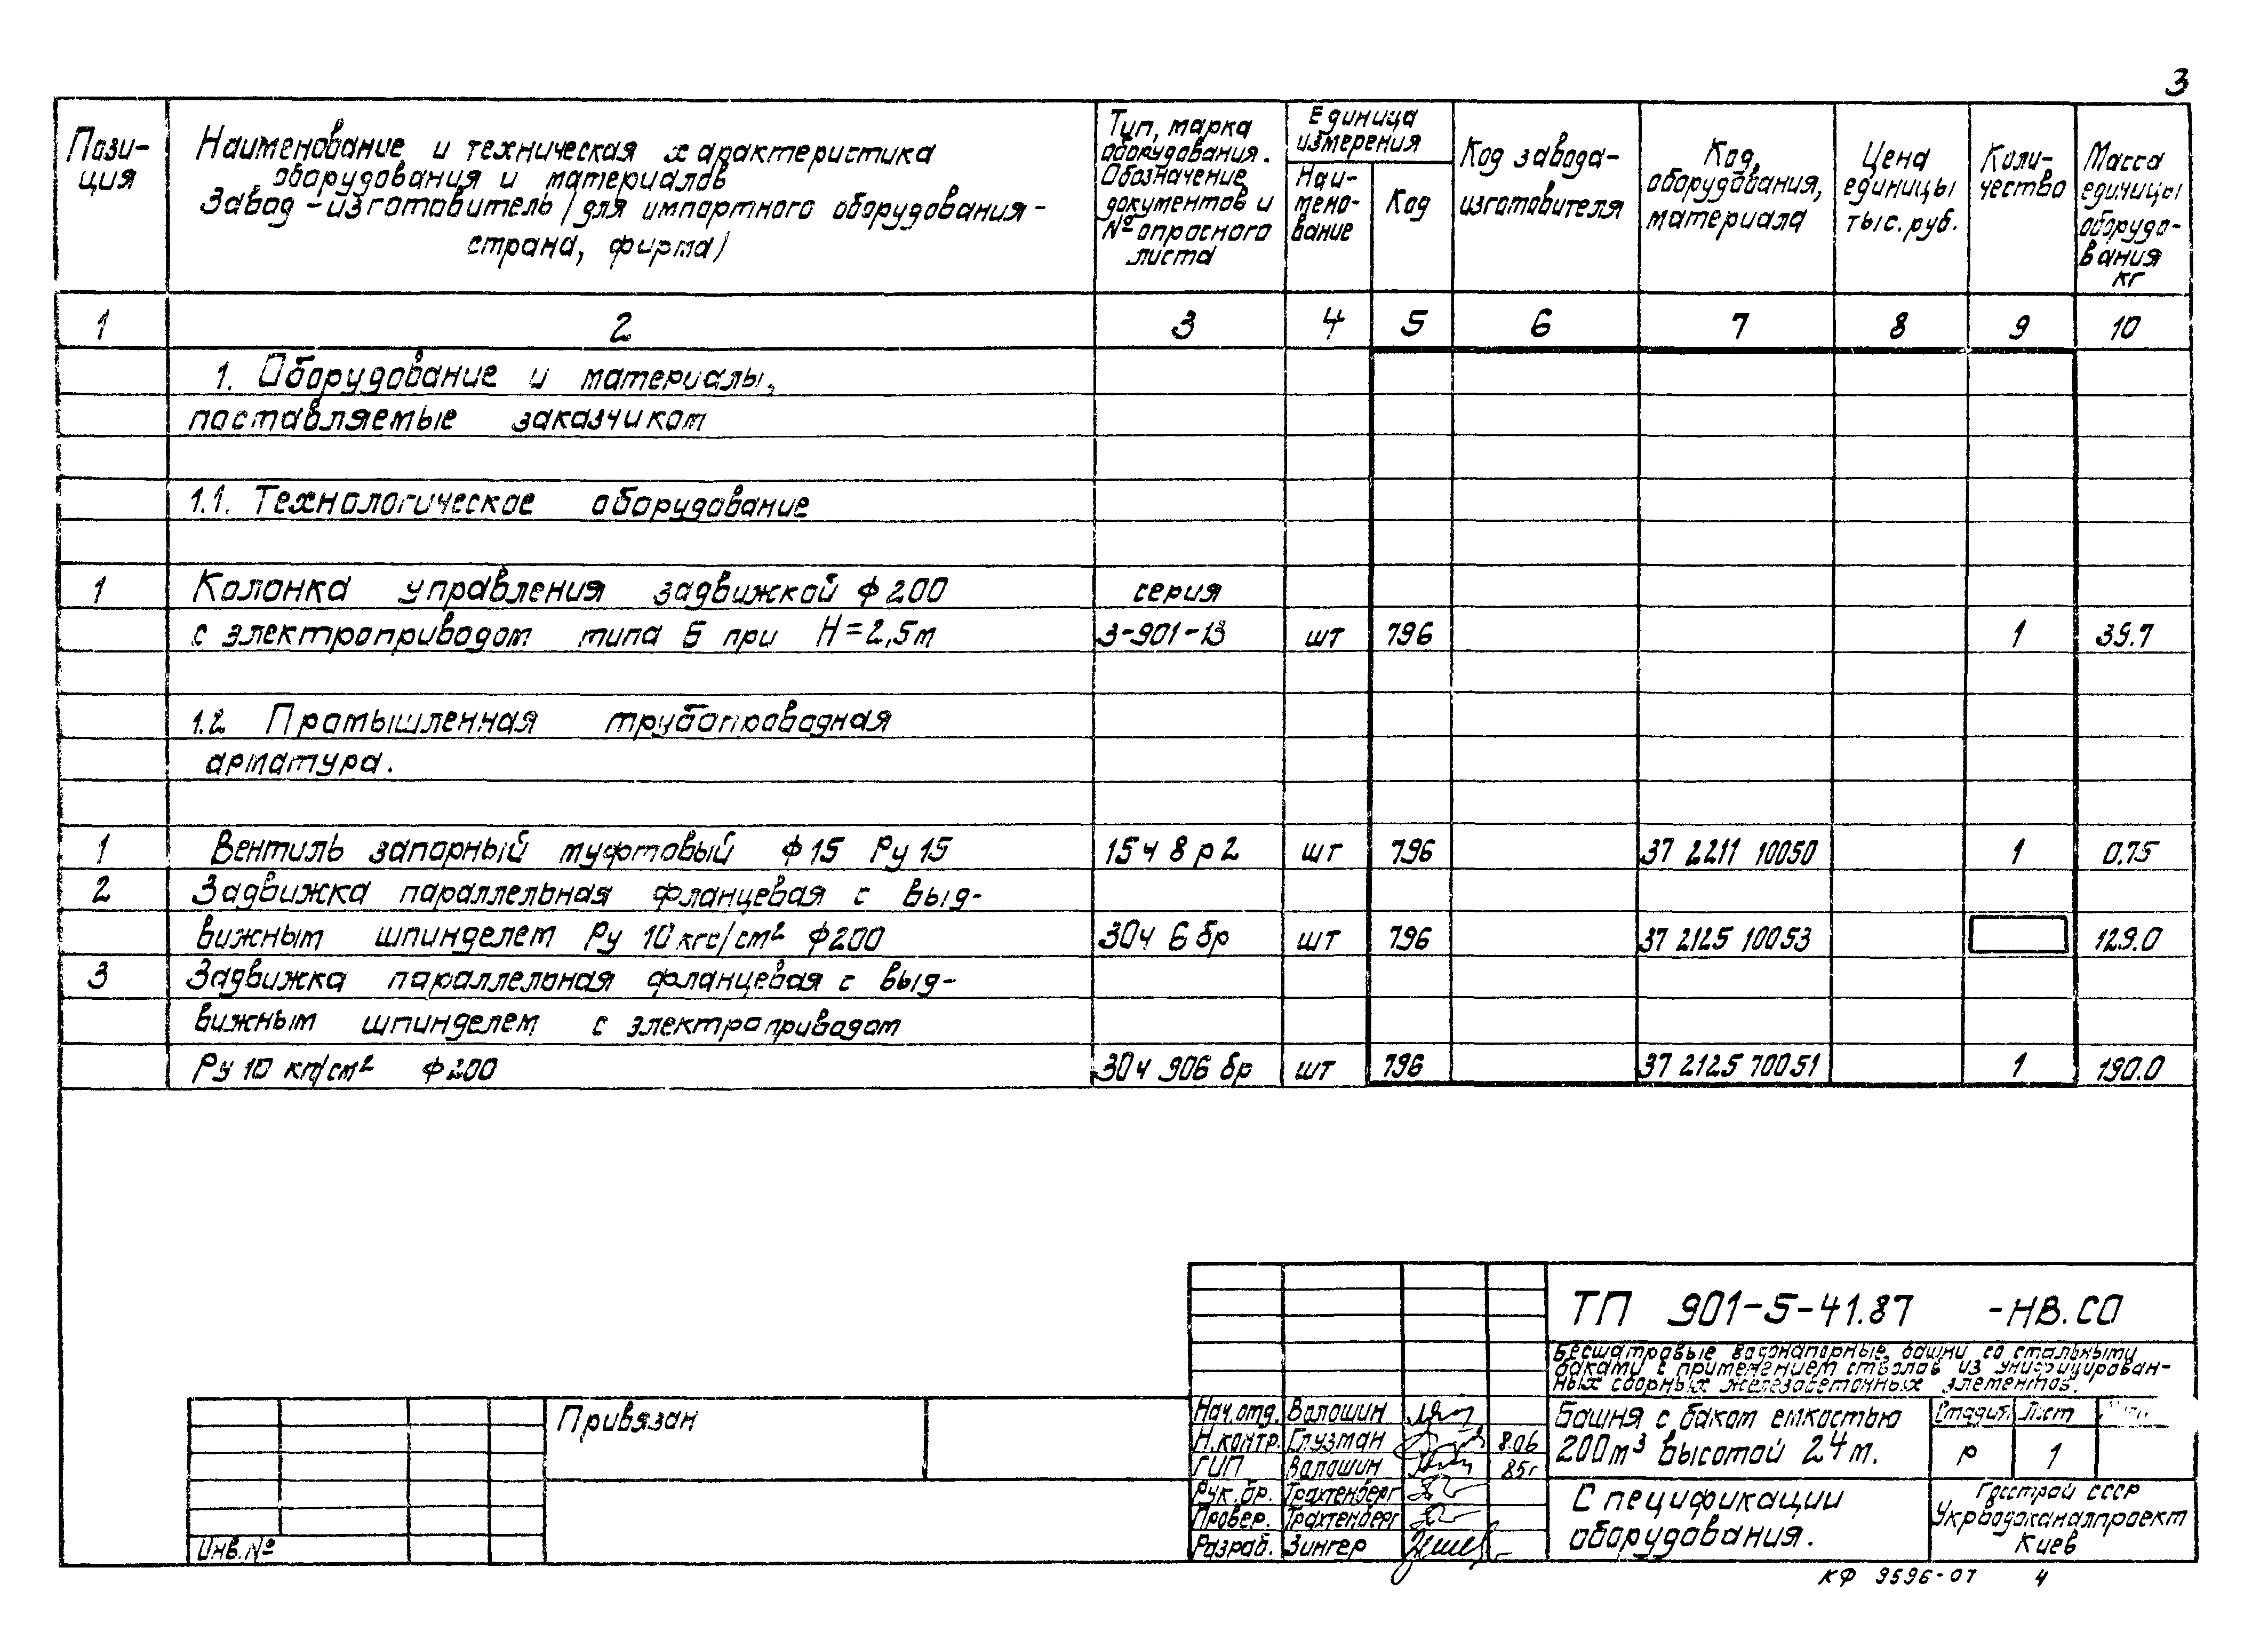 3
Пози-
ция
Наименование и техническая характеристика
оборудования и материалов
Завод-изготовитель (для импортного оборудования-
страна, фирма)
Тип, марка
оборудования.
Обозначение
документов и
№ опросного
листа
Единица
измерения
Наи-
мено-
вание
Код
Код завода-
изготовителя
Код
оборудования,
материала
Цена
единицы
тыс. руб.
Коли-
чество
Масса
единицы
оборудо-
вания
кг
1 2 3 4 5 6 7 8 9 10
1. Оборудование и материалы,
поставляемые заказчиком
1.1. Технологическое оборудование
1 Колонка управления задвижкой ф 200 серия
с электроприводом типа Б при Н=2,5м 3-901-13 шт 796 1 39.7
1.2 Промышленная трубопроводная
арматура.
1 Вентиль запорный муфтовый ф 15 Ру 15 15ч 8 р 2 шт 796 37 2211 10050 1 0.75
2 Задвижка параллельная фланцевая с выд-
вижным шпинделем Ру 10 кгс/см² ф200 30ч 6 бр шт 796 37 2125 10053 129.0
3 Задвижка параллельная фланцевая с выд-
вижным шпинделем с электроприводом
Ру 10 кгс/см² ф 200 30ч 906 бр шт 796 37 2125 70051 1 190.0
ТП 901-5-41.87 -НВ.СО
Бесшатровые водонапорные башни со стальными
баками с применением стволов из унифицирован-
ных сборных железобетонных элементов.
Привязан
Инв.№
Нач.отд. Волошин
Н.контр. Глузман 8.06
ГИП Волошин 85г
Рук.бр. Трахтенберг
Провер. Трахтенберг
Разраб. Зингер
Башня с баком емкостью
200м³ высотой 24м.
Стадия Лист
Р 1
Спецификации
оборудования.
Госстрой СССР
Укрводоканалпроект
Киев
КФ 9596-07 4